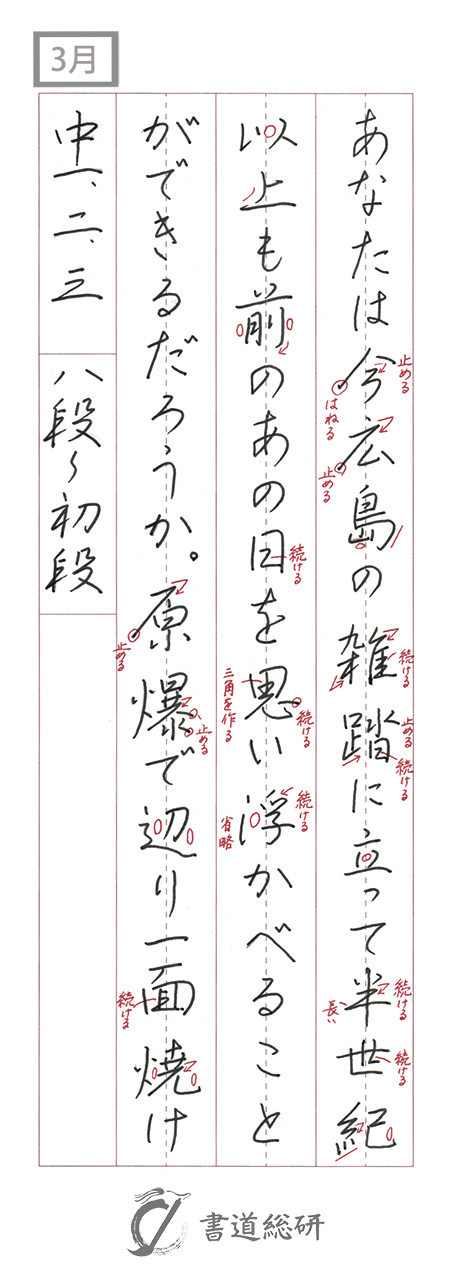 3月
あなたは今広島の雑踏に立って半世紀
止める
はねる
止める
続ける
止める
続ける
続ける
長い
続ける
以上も前のあの日を思い浮かべること
続ける
三角を作る
続ける
続ける
省略
ができるだろうか。原爆で辺り一面焼け
止める
止める
続ける
中一、二、三 八段〜初段
書道総研